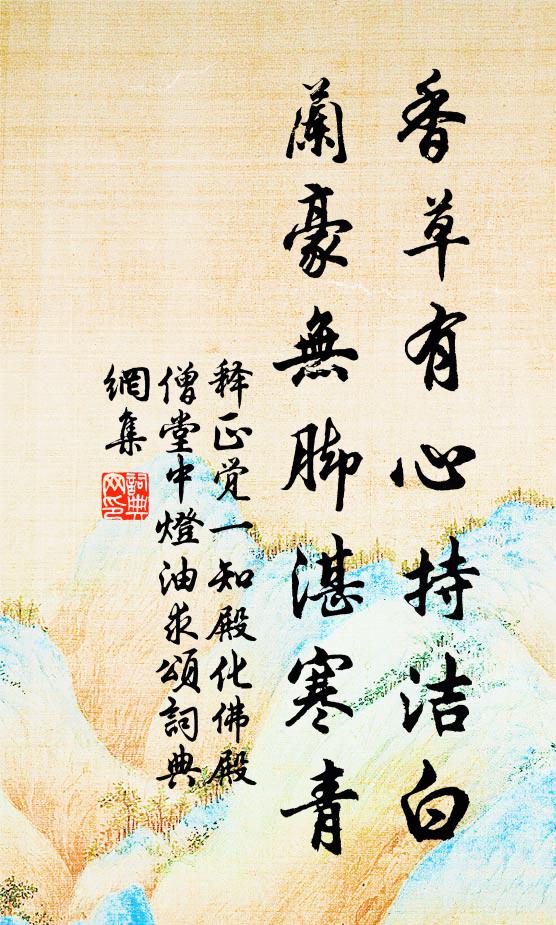 香草有心持洁白
蘭豪無脚湛寒青
释正觉一知殿化佛殿
僧堂中燈油求頌詞典
網集
詞典
网印